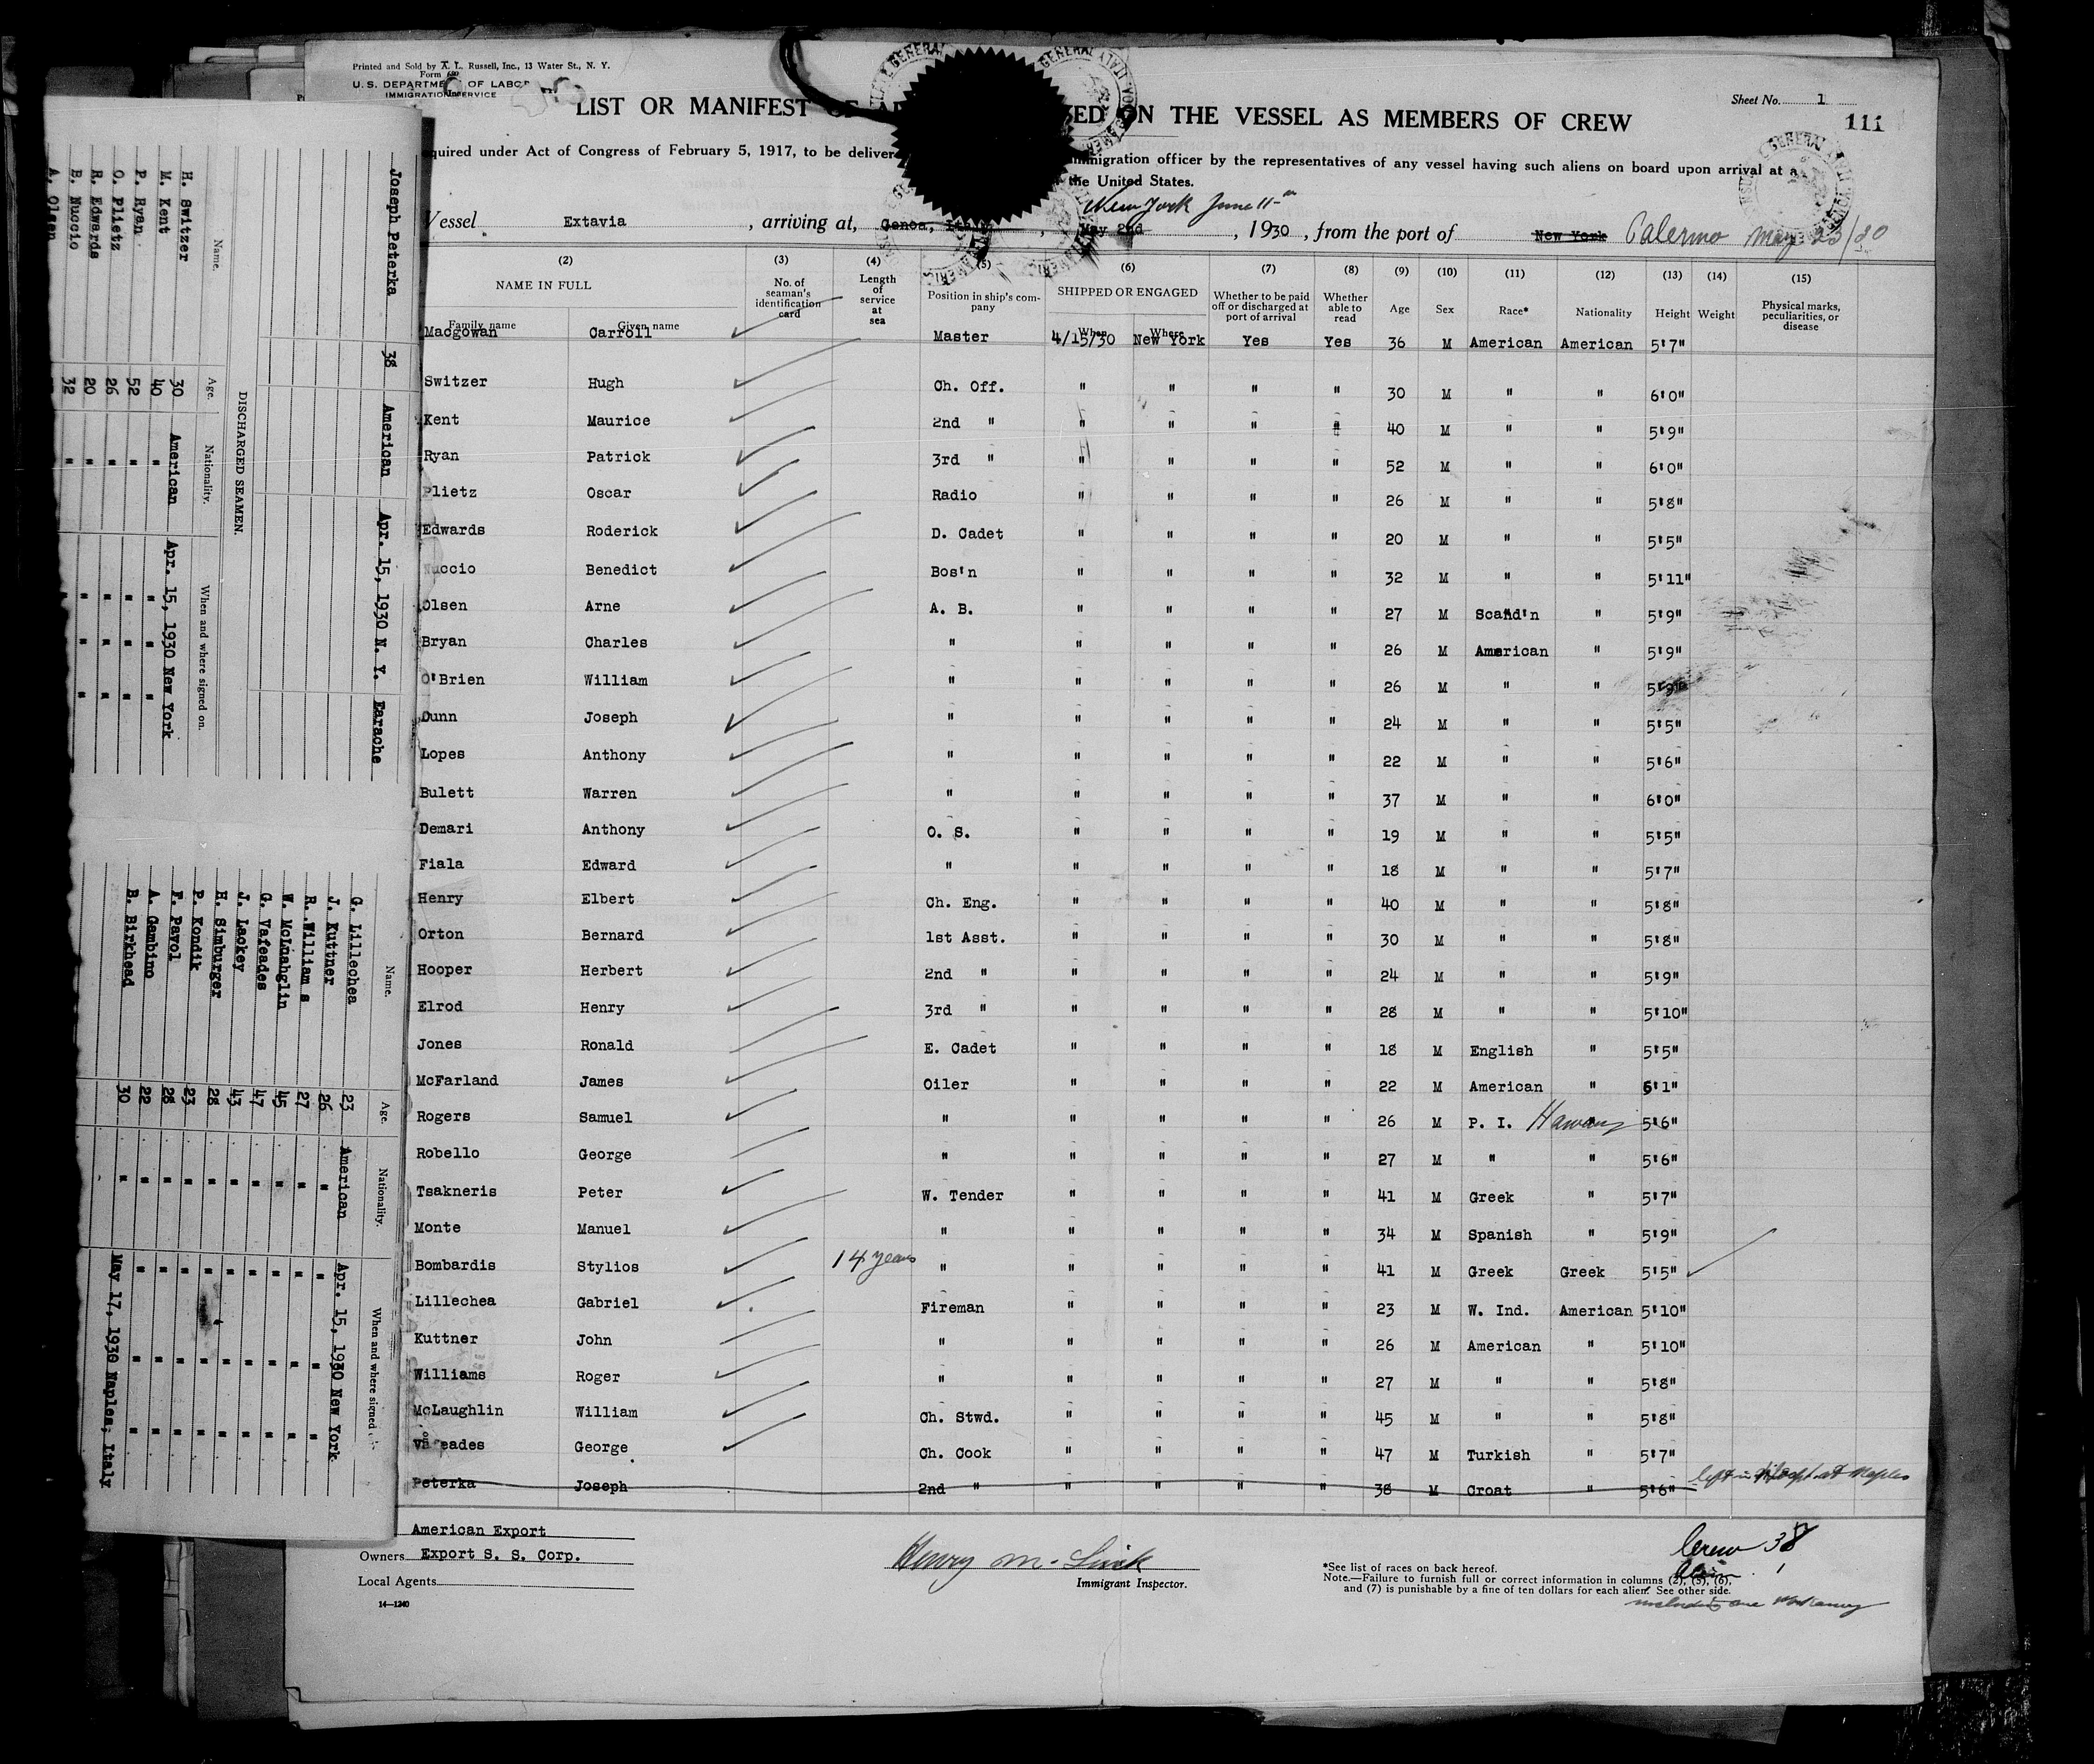 Printed and Sold by A. L. Russell, Inc., 13 Water St., N. Y.
Form
U. S. DEPARTMENT OF LABOR
IMMIGRATION SERVICE
Sheet No. 1
111
LIST OR MANIFEST OF ON THE VESSEL AS MEMBERS OF CREW
quired under Act of Congress of February 5, 1917, to be deliver immigration officer by the representatives of any vessel having such aliens on board upon arrival at a
the United States.
New York June 11
Vessel Extavia , arriving at, Genoa, , May 2nd , 1930 , from the port of New York Palermo May 23/30
(2) (3) (4) (5) (6) (7) (8) (9) (10) (11) (12) (13) (14) (15)
NAME IN FULL No. of seaman's identification card Length of service at sea Position in ship's company SHIPPED OR ENGAGED Whether to be paid off or discharged at port of arrival Whether able to read Age Sex Race* Nationality Height Weight Physical marks, peculiarities, or disease
Family name Given name When Where
Macgowan Carroll Master 4/15/30 New York Yes Yes 36 M American American 5'7"
Switzer Hugh Ch. Off. " " " " 30 M " " 6'0"
Kent Maurice 2nd " " " " " 40 M " " 5'9"
Ryan Patrick 3rd " " " " " 52 M " " 6'0"
Plietz Oscar Radio " " " " 26 M " " 5'8"
Edwards Roderick D. Cadet " " " " 20 M " " 5'5"
Nuccio Benedict Bos'n " " " " 32 M " " 5'11"
Olsen Arne A. B. " " " " 27 M Scand'n " 5'9"
Bryan Charles " " " " " 26 M American " 5'9"
O'Brien William " " " " " 26 M " " 5'9"
Dunn Joseph " " " " " 24 M " " 5'5"
Lopes Anthony " " " " " 22 M " " 5'6"
Bulett Warren " " " " " 37 M " " 6'0"
Demari Anthony O. S. " " " " 19 M " " 5'5"
Fiala Edward " " " " " 18 M " " 5'7"
Henry Elbert Ch. Eng. " " " " 40 M " " 5'8"
Orton Bernard 1st Asst. " " " " 30 M " " 5'8"
Hooper Herbert 2nd " " " " " 24 M " " 5'9"
Elrod Henry 3rd " " " " " 28 M " " 5'10"
Jones Ronald E. Cadet " " " " 18 M English " 5'5"
McFarland James Oiler " " " " 22 M American " 6'1"
Rogers Samuel " " " " " 26 M P. I. 5'6"
Robello George " " " " " 27 M " " 5'6"
Tsakneris Peter W. Tender " " " " 41 M Greek " 5'7"
Monte Manuel " " " " " 34 M Spanish " 5'9"
Bombardis Stylios 14 years " " " " " 41 M Greek Greek 5'5"
Lillechea Gabriel Fireman " " " " 23 M W. Ind. American 5'10"
Kuttner John " " " " " 26 M American " 5'10"
Williams Roger " " " " " 27 M " " 5'8"
McLaughlin William Ch. Stwd. " " " " 45 M " " 5'8"
Vafeades George Ch. Cook " " " " 47 M Turkish " 5'7"
Peterka Joseph 2nd " " " " " 38 M Croat " 5'6" left in at Naples
American Export
Owners Export S. S. Corp.
Local Agents
14—1240
Immigrant Inspector.
*See list of races on back hereof.
Note.—Failure to furnish full or correct information in columns (2), (5), (6),
and (7) is punishable by a fine of ten dollars for each alien. See other side.
Crew 38
Alien 1
including one
Joseph Peterka 38 American Apr. 15, 1930 N. Y. Earache
DISCHARGED SEAMEN.
Name. Age. Nationality. When and where signed on.
H. Switzer 30 American Apr. 15, 1930 New York
M. Kent 40 " " " "
P. Ryan 52 " " " "
O. Plietz 26 " " " "
R. Edwards 20 " " " "
B. Nuccio 32 "
A. Olsen
Name. Age. Nationality. When and where signed
G. Lillechea 23 American Apr. 15, 1930 New York
J. Kuttner 26 " " " "
R. Williams 27 " " " "
W. McLnahglin 45 " " " "
G. Vafeades 47 " " " "
J. Lackey 43 " " " "
H. Simburger 28 " " " "
P. Kondik 23 " " " "
F. Pavol 28 " " " "
A. Gambino 22 " " " "
B. Birkhead 30 " May 17, 1930 Naples, Italy